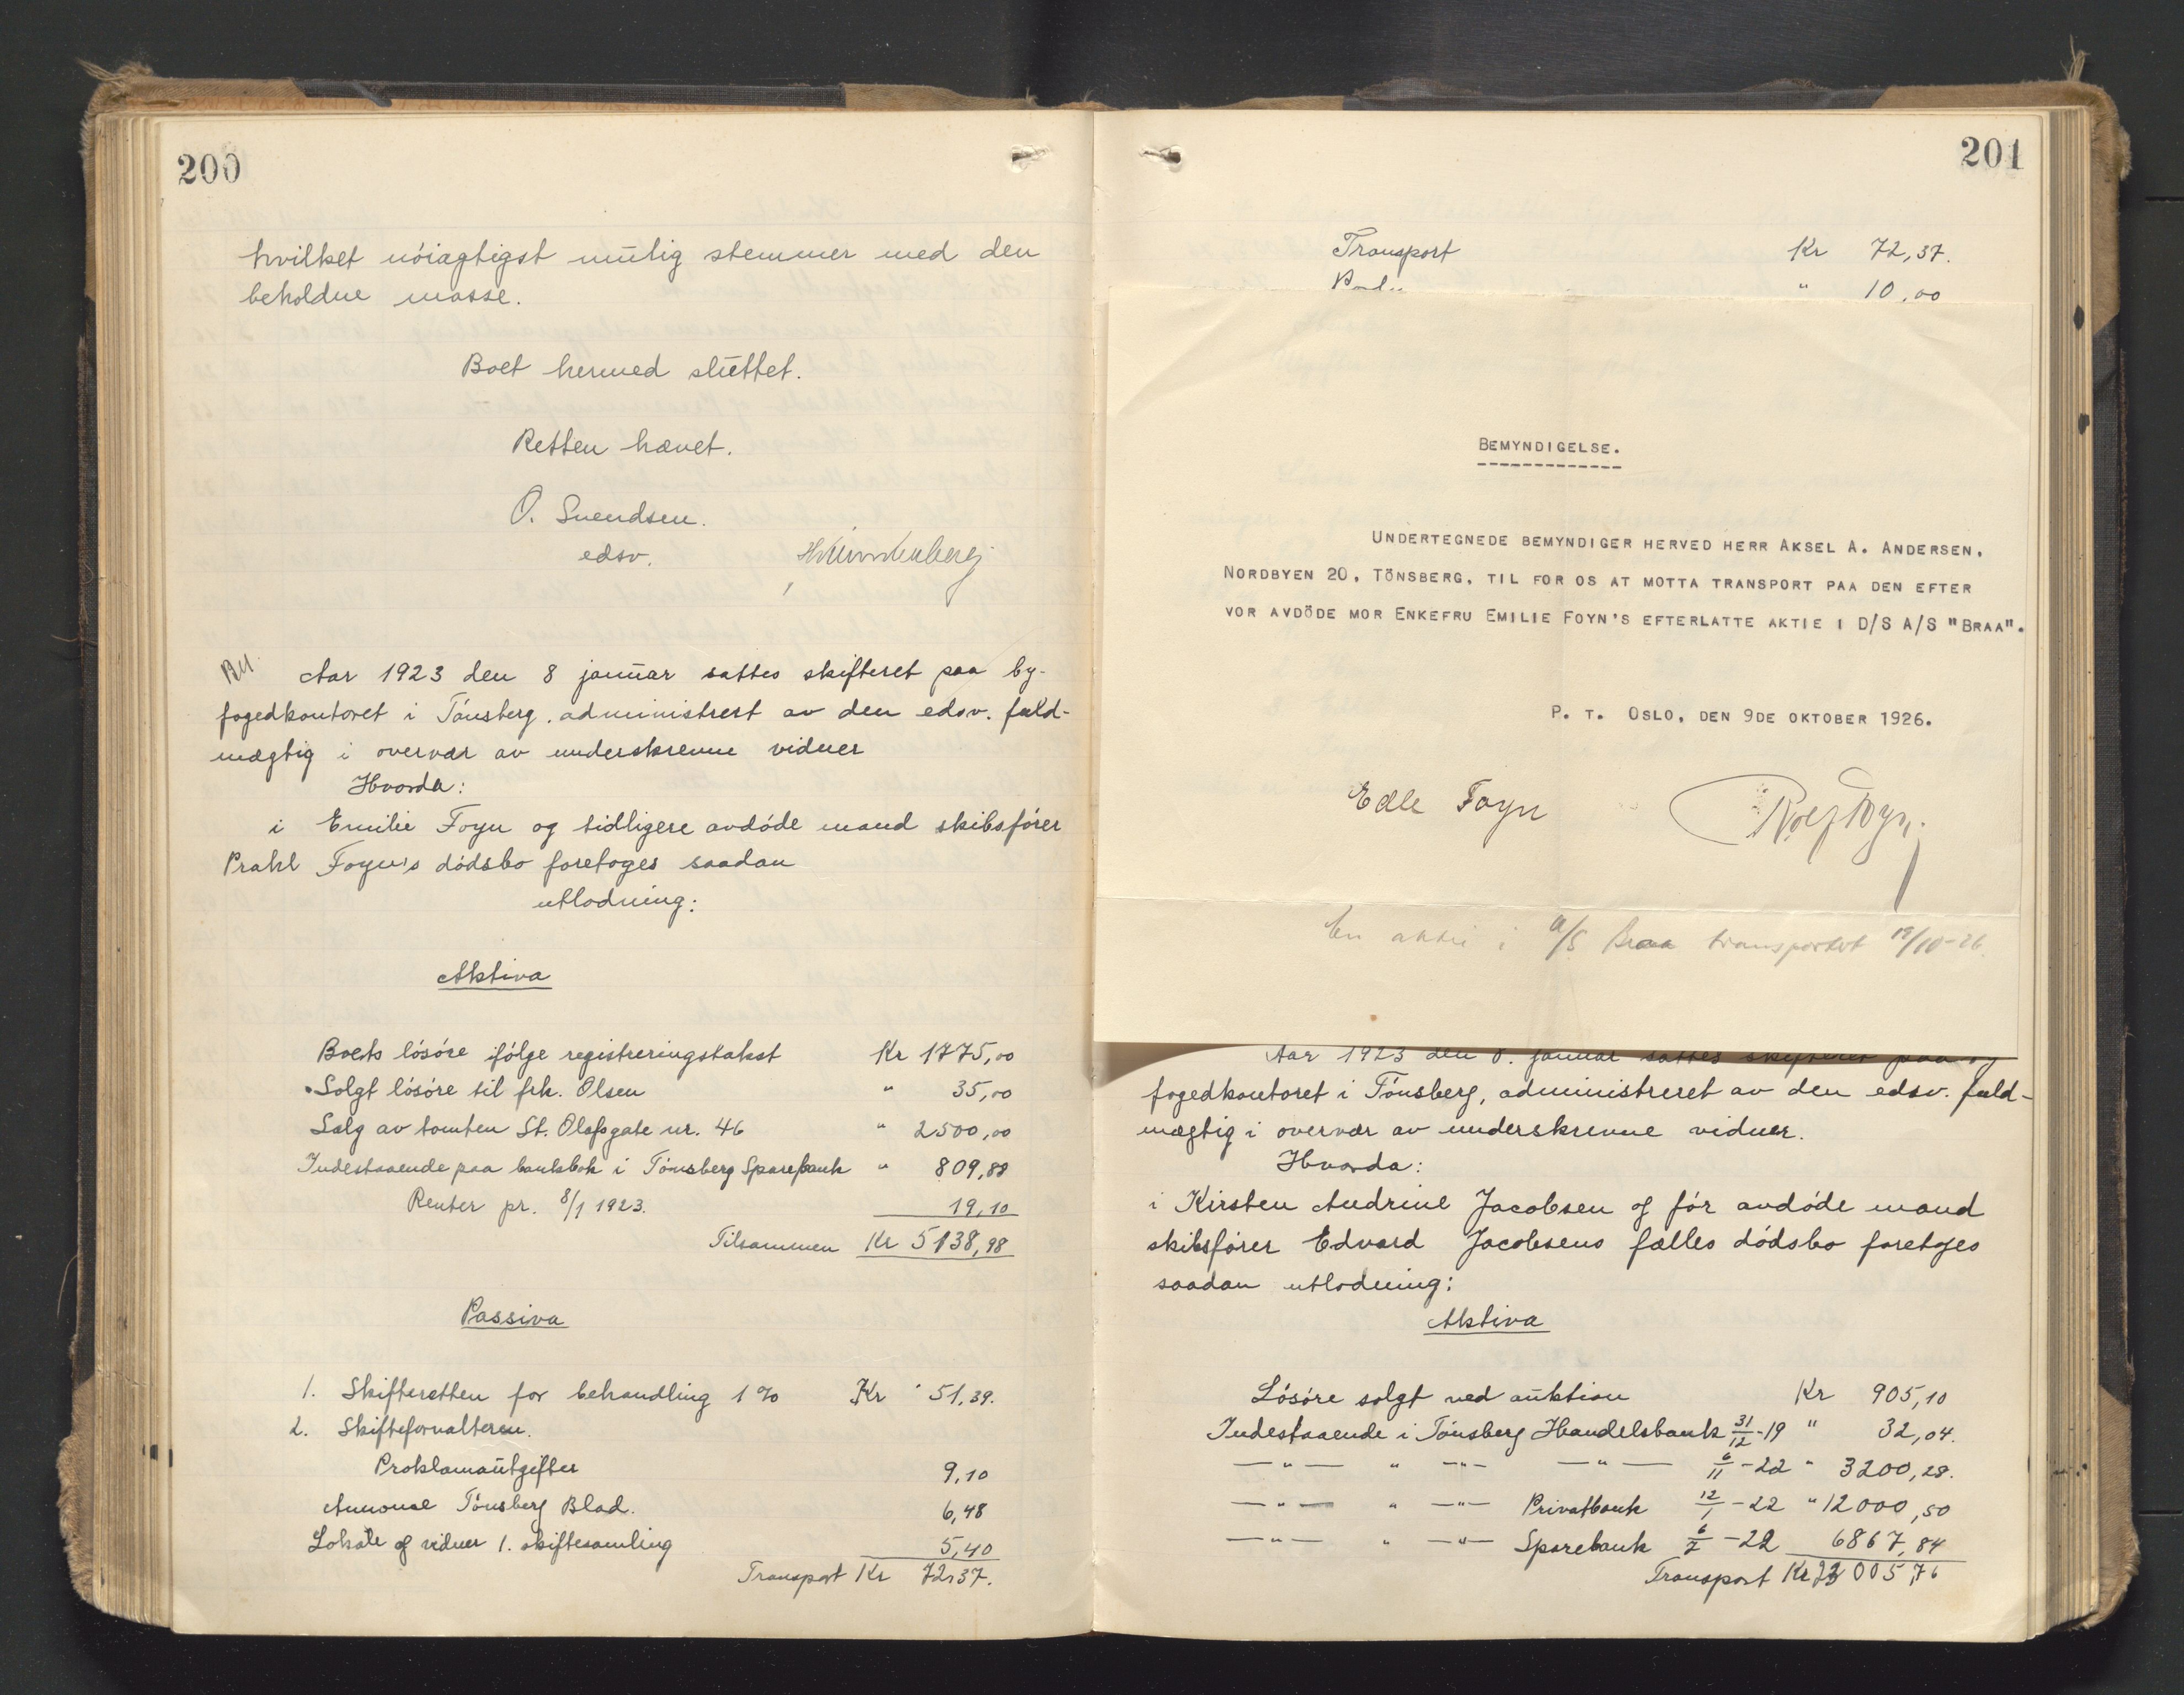 200
hvilket nöiagtigst mulig stemmer med den
beholdne masse.
Boet hermed sluttet.
Retten hævet.
O. Svendsen.
edsv.
Aar 1923 den 8 januar sattes skifteret paa by-
fogedkontoret i Tönsberg, administrert av den edsv. fuld-
mægtig i overvær av underskrevne vidner
Hvorda:
i Emilie Foyn og tidligere avdöde mand skibsförer
Prahl Foyn's dödsbo foretoges saadan
utlodning:
Aktiva
Boets lösöre ifölge registreringstakst Kr 1775,00
Solgt lösöre til frk. Olsen " 35,00
Salg av tomten St. Olafsgate nr. 46 " 2500,00
Indestaaende paa bankbok i Tönsberg Sparebank " 809,88
Renter pr. 8/1 1923. 19,10
Tilsammen Kr 5138,98
Passiva
1. Skifteretten for behandling 1 % Kr 51,39.
2. Skifteforvalteren.
Proklamautgifter 9,10
Annonse Tönsberg Blad. 6,48
Lokale og vidner 1. skiftesamling 5,40
Transport Kr 72,37.
201
Transport Kr 72,37.
" 10,00
BEMYNDIGELSE.
UNDERTEGNEDE BEMYNDIGER HERVED HERR AKSEL A. ANDERSEN,
NORDBYEN 20, TÖNSBERG, TIL FOR OS AT MOTTA TRANSPORT PAA DEN EFTER
VOR AVDÖDE MOR ENKEFRU EMILIE FOYN'S EFTERLATTE AKTIE I D/S A/S "BRAA".
P. T. OSLO, DEN 9DE OKTOBER 1926.
Edle Foyn
Foyn.
En aktie i A/S Braa transportert 19/10-26
Aar 1923 den 8. januar sattes skifteret paa by
fogedkontoret i Tönsberg, administreret av den edsv. fuld-
mægtig i overvær av underskrevne vidner.
Hvorda:
i Kirsten Andrine Jacobsen og för avdöde mand
skibsförer Edvard Jacobsens fælles dödsbo foretoges
saadan utlodning:
Aktiva
Lösöre solgt ved auktion Kr 905,10
Indestaaende i Tönsberg Handelsbank 31/12-19 " 32,04.
—"— " —"— —"— 6/11-22 " 3200,28.
—"— " —"— Privatbank 12/1-22 " 12000,50
—"— " —"— Sparebank 6/2-22 6867,84
Transport Kr 23005,76